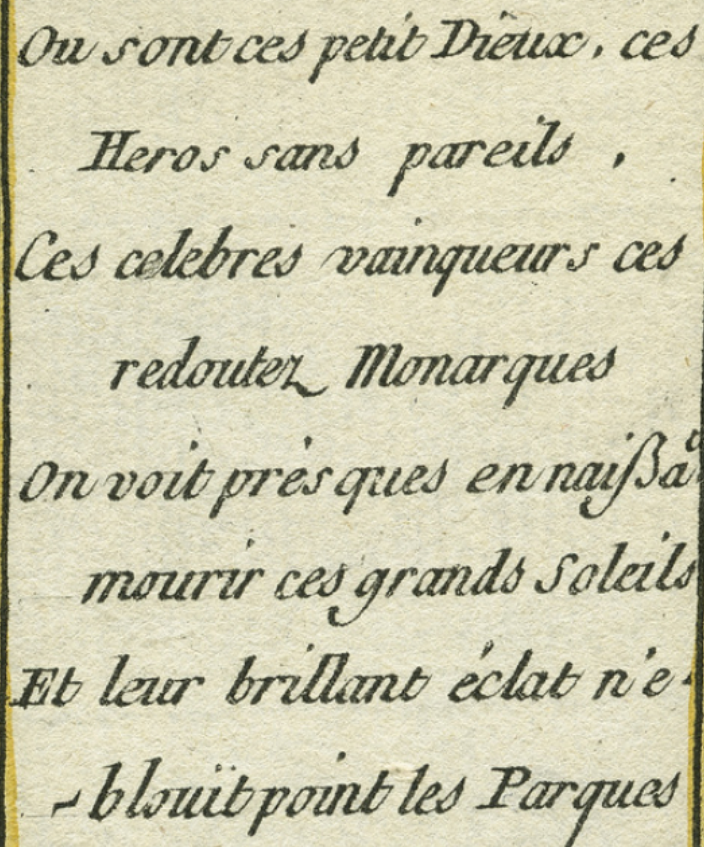 Ou sont ces petit Dieux, ces
Heros sans pareils,
Ces celebres vainqueurs ces
redoutez Monarques
On voit présques en naißāt
mourir ces grands Soleils
Et leur brillant éclat n'e-
-blouït point les Parques